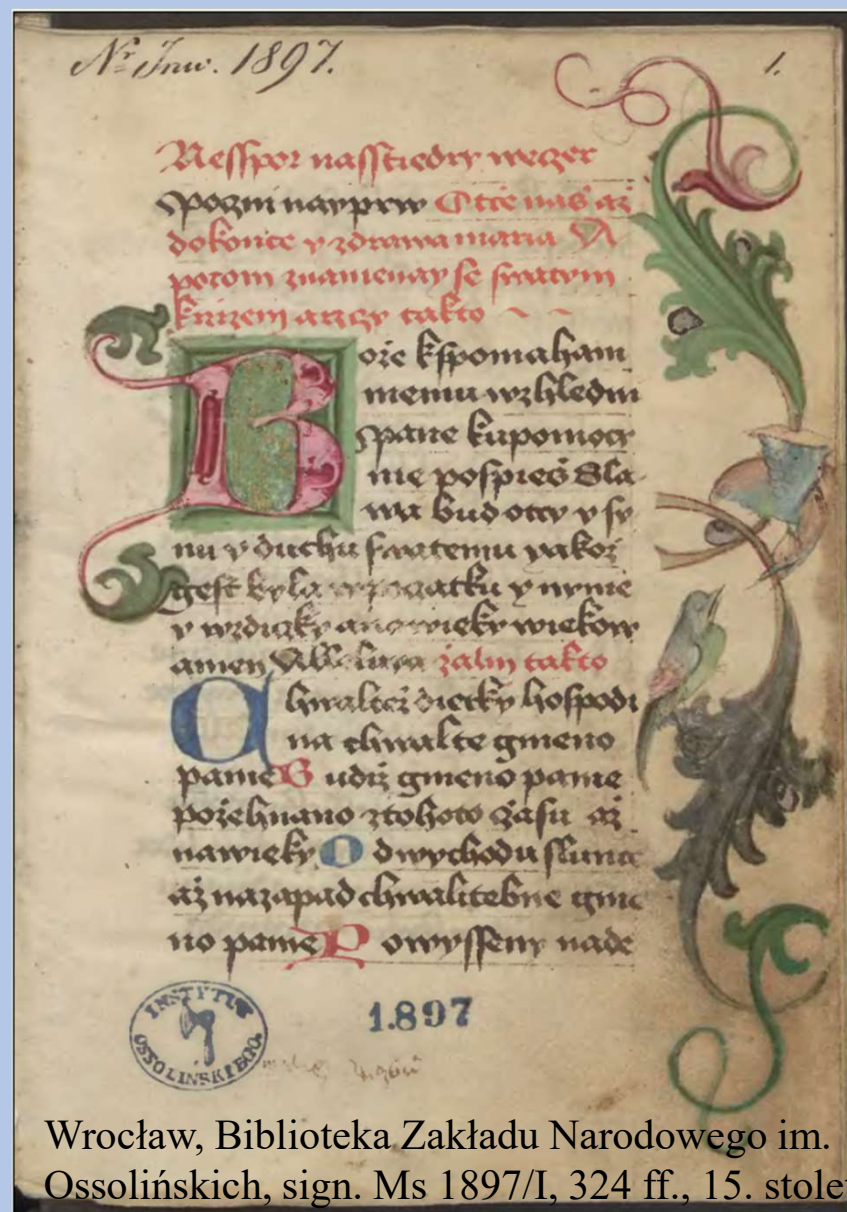 Nr Inw. 1897.
1.
Nesspor nasstiedry weczer
Spoczni nayprw Otcze nas až
dokonce y zdrawa maria A
potom znamenay se swatym
krzizem arzcy takto
Bože kspomahani
memu wzhledni
Spane kupomocy
mie pospieš Sla
wa bud otcy y sy
nu y duchu swatemu yakož
gest byla wpoczatku y nynie
y wzdiczky anawieky wiekow
amen Alleluya žalm takto
Chwaltež dietky hospodi
na chwalte gmeno
panie Budiž gmeno panie
požehnano ztohoto čzasu až
nawieky Odwychodu slunce
až nazapad chwalitebne gme
no panie Powysseny nade
INSTYTUT
OSSOLIŃSKIEGO
1.897
Wrocław, Biblioteka Zakładu Narodowego im.
Ossolińskich, sign. Ms 1897/I, 324 ff., 15. stole